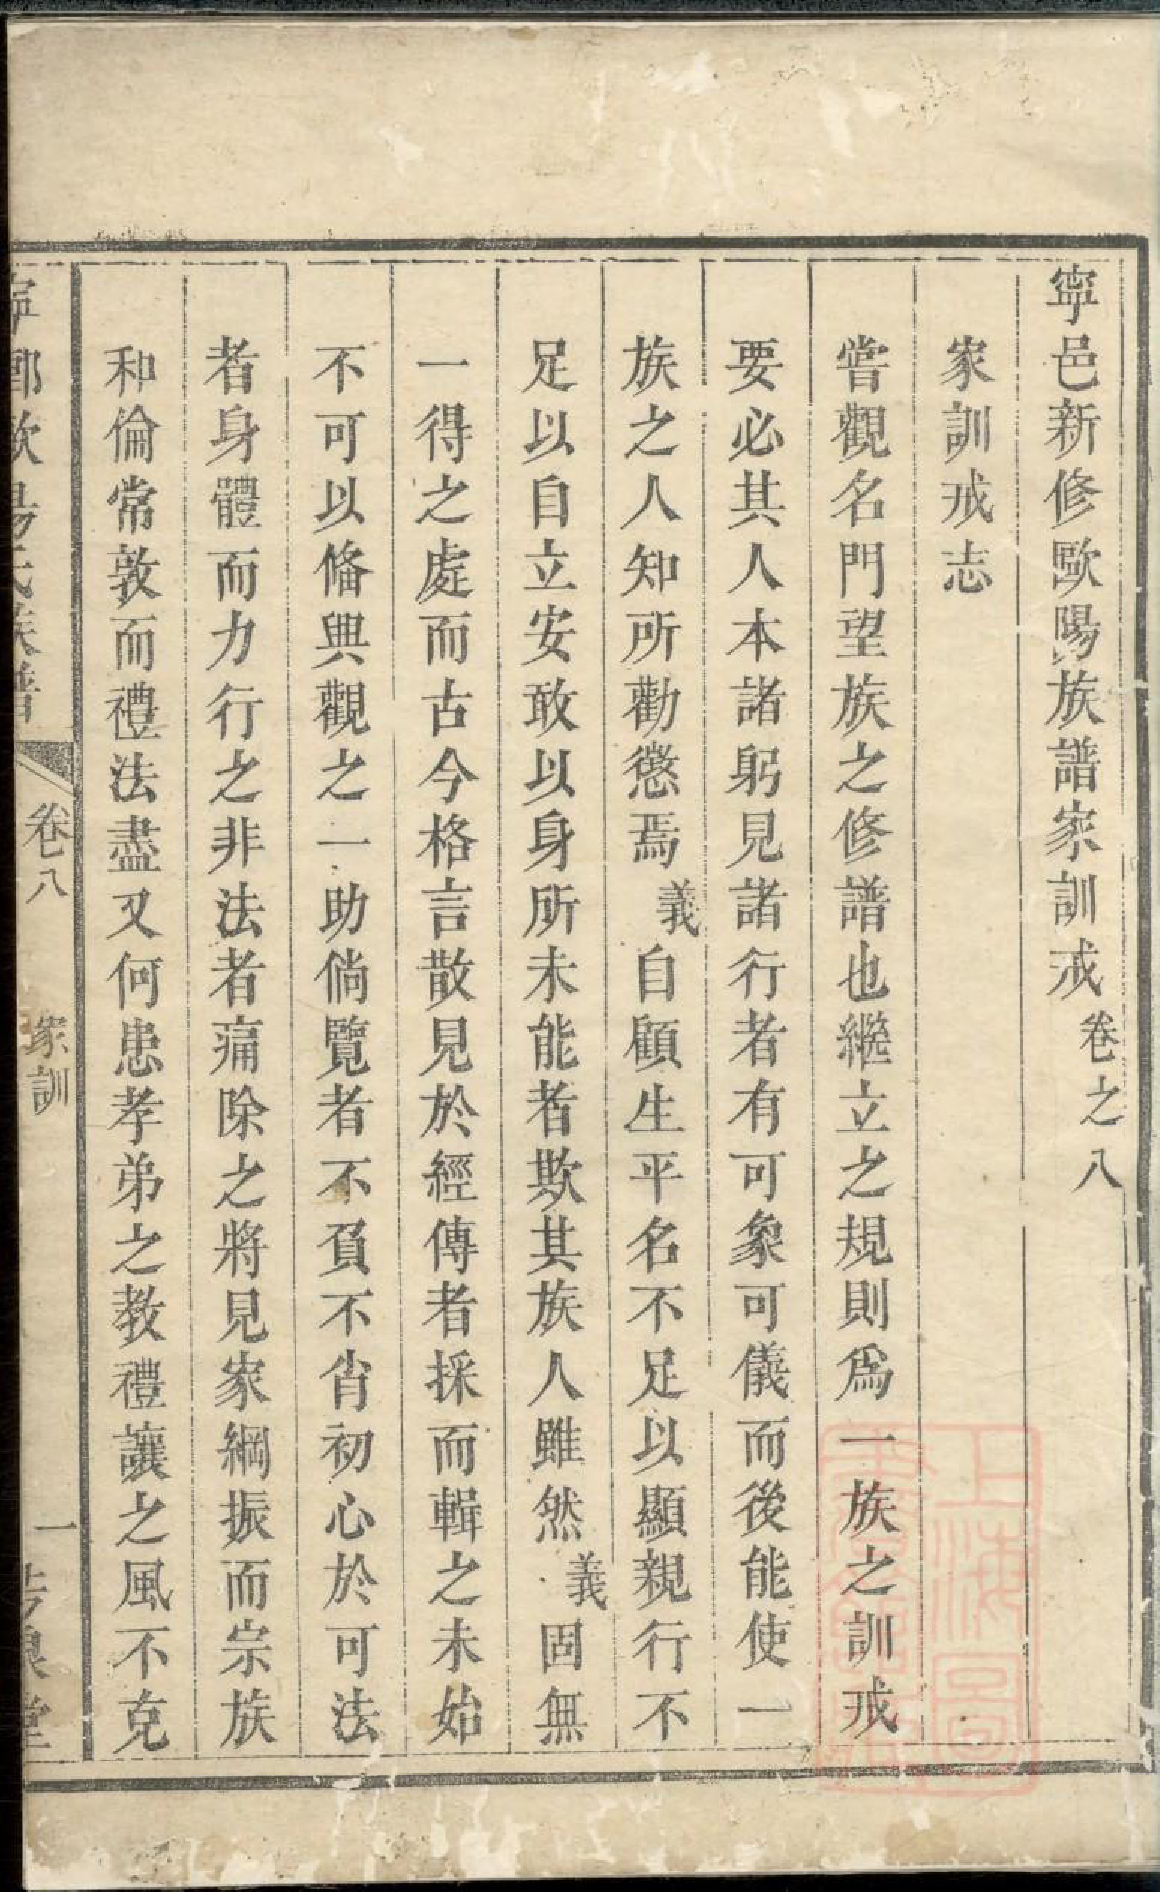 寧邑新修歐陽族譜家訓戒卷之八
家訓戒志
嘗觀名門望族之修譜也繼立之規則爲一族之訓戒
要必其人本諸躬見諸行者有可象可儀而後能使一
族之人知所勸懲焉義自顧生平名不足以顯親行不
足以自立安敢以身所未能者欺其族人雖然義固無
一得之處而古今格言散見於經傳者採而輯之未始
不可以備興觀之一助倘覽者不負不肯初心於可法
者身體而力行之非法者痛除之將見家綱振而宗族
和倫常敦而禮法盡又何患孝弟之教禮讓之風不克
寧鄉歐陽氏族譜
卷八
家訓
一
上海圖書館藏